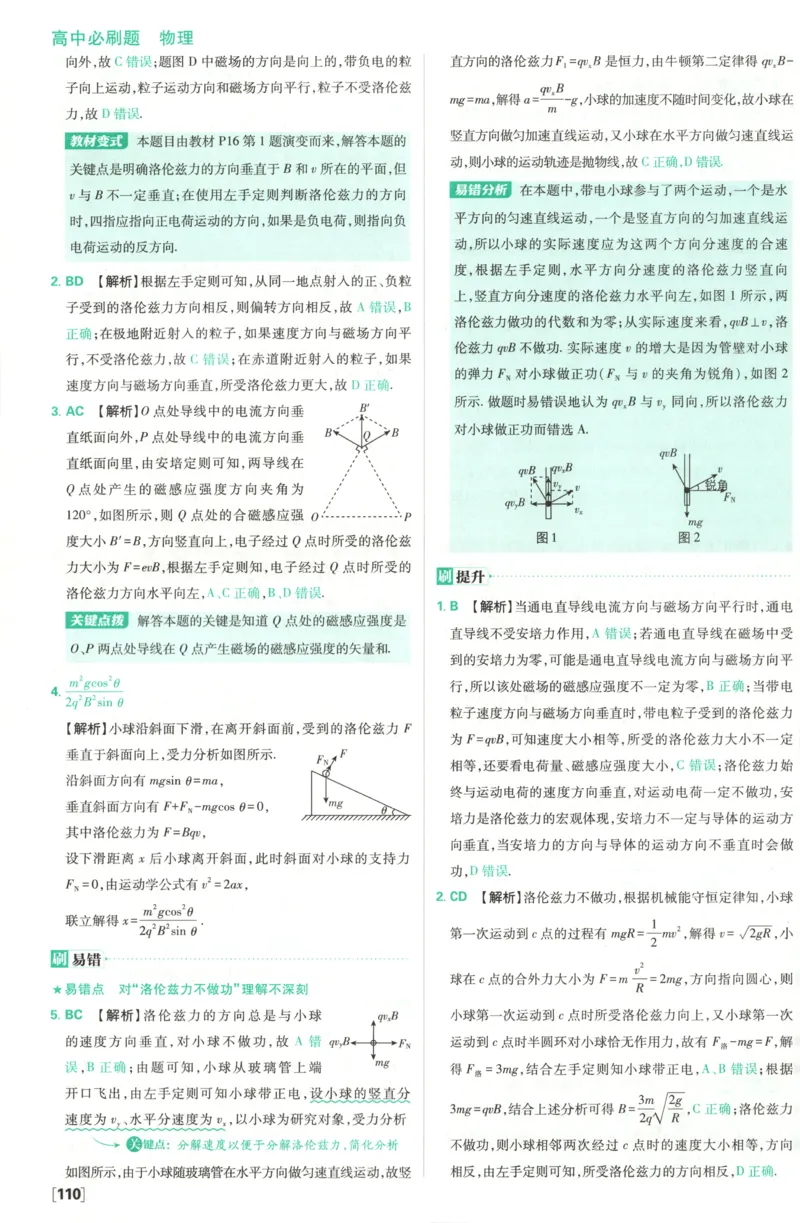 高中必刷题 物理
向外,故 C 错误;题图 D 中磁场的方向是向上的,带负电的粒
子向上运动,粒子运动方向和磁场方向平行,粒子不受洛伦兹
力,故 D 错误.
教材变式 本题目由教材 P16 第 1 题演变而来,解答本题的
关键点是明确洛伦兹力的方向垂直于 B 和 v 所在的平面,但
v 与 B 不一定垂直;在使用左手定则判断洛伦兹力的方向
时,四指应指向正电荷运动的方向,如果是负电荷,则指向负
电荷运动的反方向.
2. BD 【解析】根据左手定则可知,从同一地点射入的正、负粒
子受到的洛伦兹力方向相反,则偏转方向相反,故 A 错误,B
正确;在极地附近射入的粒子,如果速度方向与磁场方向平
行,不受洛伦兹力,故 C 错误;在赤道附近射入的粒子,如果
速度方向与磁场方向垂直,所受洛伦兹力更大,故 D 正确.
3. AC 【解析】O 点处导线中的电流方向垂
直纸面向外,P 点处导线中的电流方向垂
直纸面向里,由安培定则可知,两导线在
Q 点处产生的磁感应强度方向夹角为
120°,如图所示,则 Q 点处的合磁感应强
度大小 B'=B,方向竖直向上,电子经过 Q 点时所受的洛伦兹
力大小为 F=evB,根据左手定则知,电子经过 Q 点时所受的
洛伦兹力方向水平向左,A、C 正确,B、D 错误.
B'
B
Q
B
O
P
关键点拨 解答本题的关键是知道 Q 点处的磁感应强度是
O、P 两点处导线在 Q 点产生磁场的磁感应强度的矢量和.
4. m²gcos²θ
2q²B²sin θ
【解析】小球沿斜面下滑,在离开斜面前,受到的洛伦兹力 F
垂直于斜面向上,受力分析如图所示.
沿斜面方向有 mgsin θ=ma,
垂直斜面方向有 F+F_N-mgcos θ=0,
其中洛伦兹力为 F=Bqv,
F_N
F
mg
θ
设下滑距离 x 后小球离开斜面,此时斜面对小球的支持力
F_N=0,由运动学公式有 v²=2ax,
联立解得 x=m²gcos²θ/2q²B²sin θ.
刷易错
★易错点 对“洛伦兹力不做功”理解不深刻
5. BC 【解析】洛伦兹力的方向总是与小球
的速度方向垂直,对小球不做功,故 A 错
误,B 正确;由题可知,小球从玻璃管上端
开口飞出,由左手定则可知小球带正电,设小球的竖直分
速度为 v_y、水平分速度为 v_x,以小球为研究对象,受力分析
qv_xB
qv_yB
F_N
mg
关键点:分解速度以便于分解洛伦兹力,简化分析
如图所示,由于小球随玻璃管在水平方向做匀速直线运动,故竖
[110]
直方向的洛伦兹力F₁=qv_xB 是恒力,由牛顿第二定律得 qv_xB-
mg=ma,解得 a=qv_xB/m-g,小球的加速度不随时间变化,故小球在
竖直方向做匀加速直线运动,又小球在水平方向做匀速直线运
动,则小球的运动轨迹是抛物线,故 C 正确,D 错误.
易错分析 在本题中,带电小球参与了两个运动,一个是水
平方向的匀速直线运动,一个是竖直方向的匀加速直线运
动,所以小球的实际速度应为这两个方向分速度的合速
度,根据左手定则,水平方向分速度的洛伦兹力竖直向
上,竖直方向分速度的洛伦兹力水平向左,如图 1 所示,两
洛伦兹力做功的代数和为零;从实际速度来看,qvB⊥v,洛
伦兹力 qvB 不做功. 实际速度 v 的增大是因为管壁对小球
的弹力 F_N 对小球做正功(F_N 与 v 的夹角为锐角),如图 2
所示. 做题时易错误地认为 qv_xB 与 v_y 同向,所以洛伦兹力
对小球做正功而错选 A.
qvB
qv_xB
v_y
v
qv_yB
v_x
图1
qvB
v
锐角
F_N
mg
图2
刷提升
1. B 【解析】当通电直导线电流方向与磁场方向平行时,通电
直导线不受安培力作用,A 错误;若通电直导线在磁场中受
到的安培力为零,可能是通电直导线电流方向与磁场方向平
行,所以该处磁场的磁感应强度不一定为零,B 正确;当带电
粒子速度方向与磁场方向垂直时,带电粒子受到的洛伦兹力
为 F=qvB,可知速度大小相等,所受的洛伦兹力大小不一定
相等,还要看电荷量、磁感应强度大小,C 错误;洛伦兹力始
终与运动电荷的速度方向垂直,对运动电荷一定不做功,安
培力是洛伦兹力的宏观体现,安培力不一定与导体的运动方
向垂直,当安培力的方向与导体的运动方向不垂直时会做
功,D 错误.
2. CD 【解析】洛伦兹力不做功,根据机械能守恒定律知,小球
第一次运动到 c 点的过程有 mgR=1/2mv²,解得 v=√2gR,小
球在 c 点的合外力大小为 F=mv²/R=2mg,方向指向圆心,则
小球第一次运动到 c 点时所受洛伦兹力向上,又小球第一次
运动到 c 点时半圆环对小球恰无作用力,故有 F洛-mg=F,解
得 F洛=3mg,结合左手定则知小球带正电,A、B 错误;根据
3mg=qvB,结合上述分析可得 B=3m/2q√2g/R,C 正确;洛伦兹力
不做功,则小球相邻两次经过 c 点时的速度大小相等,方向
相反,由左手定则可知,所受洛伦兹力的方向相反,D 正确.